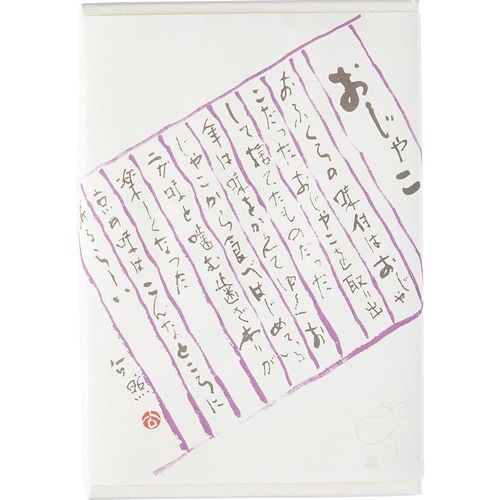 おじゃこ
おふくろの味付はおじゃ
こだった おじゃこを取り出
して捨てたものだった
年は味をかんてゆく お
じゃこから食べはじめている
二カ味と噛む歯ざわりが
楽しくなった
京の味はこんなところに
あるらしい